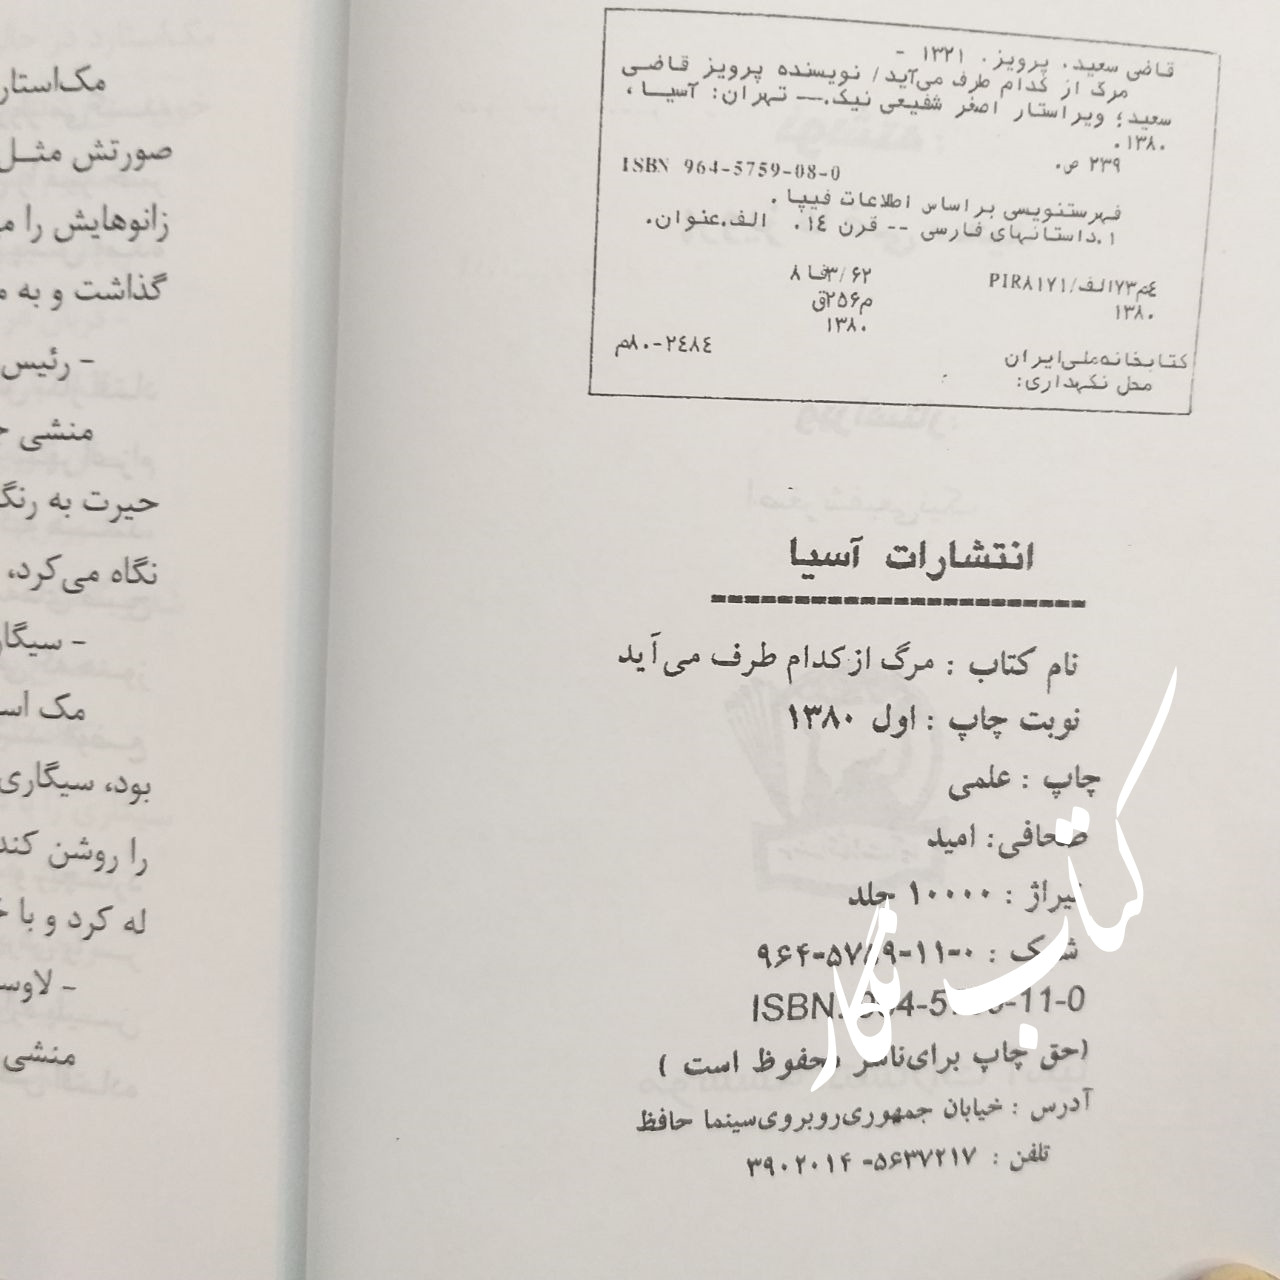 قاضی سعید، پرویز، ۱۳۲۱ -
مرگ از کدام طرف می‌آید/ نویسنده پرویز قاضی
سعید؛ ویراستار اصغر شفیعی نیک.— تهران: آسیا،
۱۳۸۰.
۲۳۹ ص.
ISBN 964-5759-08-0
فهرستنویسی براساس اطلاعات فیپا.
۱.داستانهای فارسی -- قرن ۱۴. الف.عنوان.
۸فا۳/۶۲
PIR۸۱۷۱/الف۷۳م۴
م۲۵۶ق
۱۳۸۰
۱۳۸۰
کتابخانه‌ملی‌ایران
م۸۰-۲۴۸۴
محل نگهداری:
انتشارات آسیا
نام کتاب : مرگ از کدام طرف می‌آید
نوبت چاپ : اول ۱۳۸۰
چاپ : علمی
صحافی: امید
تیراژ : ۱۰۰۰۰ جلد
شابک :
ISBN:
(حق چاپ برای‌ناشر محفوظ است )
آدرس : خیابان جمهوری‌روبروی‌سینما حافظ
تلفن : ۵۶۳۷۲۱۷- ۳۹۰۲۰۱۴
کتاب نگار
مک‌استار
صورتش مثل
زانوهایش را
گذاشت و به
- رئیس
منشی
حیرت به
نگاه می‌کرد،
- سیگار
مک
بود، سیگاری
را روشن کند
له کرد و با
-
منشی